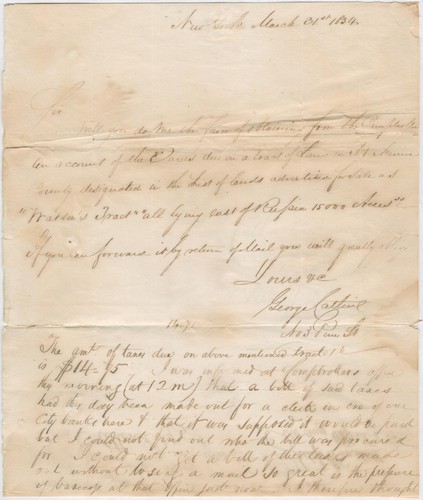 New York March 31st 1834.
Sir
Will you do me the favor of obtaining from the Comptroller
an account of the Taxes due on a tract of Land in
County designated in the list of lands advertised for Sale as
"Watson's Tract" all lying east of 15000 Acres"
If you can forward it by return of Mail you will greatly
Yours &c
George
No 3 Pine St
The amt of taxes due on above mentioned tract
is $14 I was informed at Comptrollers office
this morning (at 12 m) that a bill of said taxes
had this day been made out for a clerk in one of our
City banks here & that it was supposed it would be paid
but I could not find out who the bill was procured
for I could not get a bill of the taxes made
out without losing a mail so great is the pressure
of business at that office just now I then thought